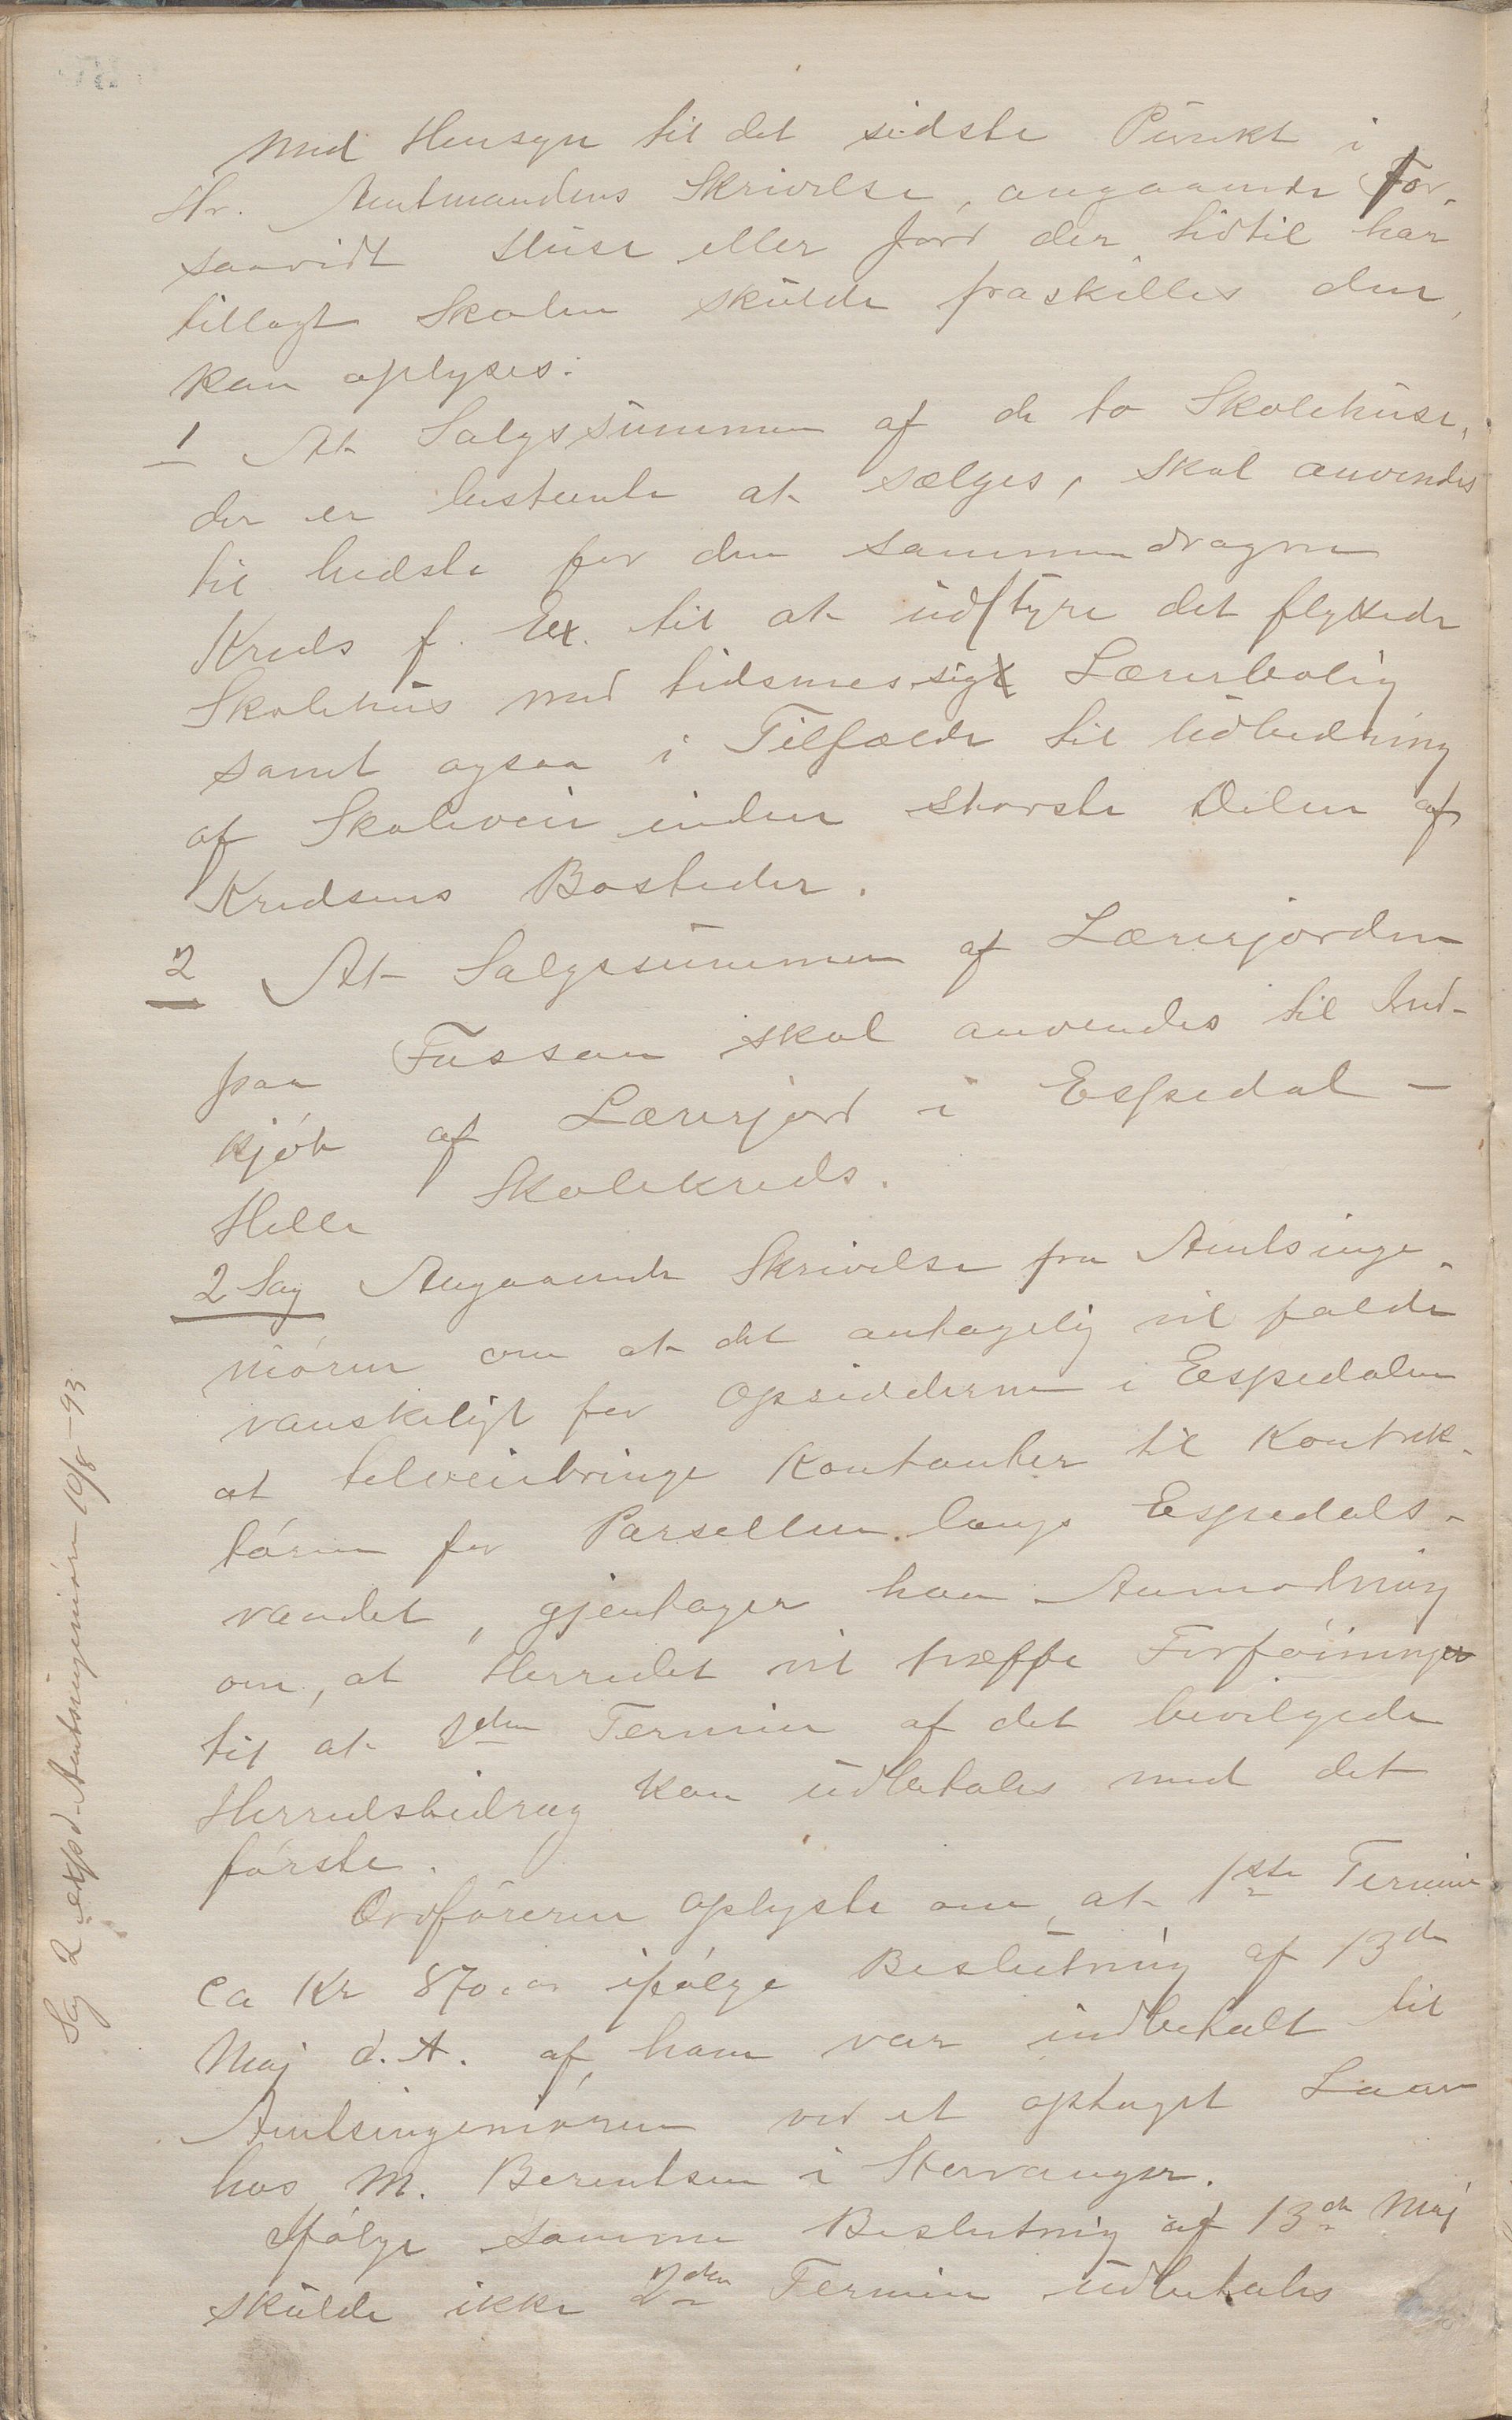 Med Hensyn til det sidste Punkt i
Hr. Amtmandens Skrivelse, angaaende For-
saavidt Huse eller Jord der hidtil har
tillagt Skolen skulde fraskilles den,
kan oplyses:
1 At Salgssummen af de to Skolehuse,
der er bestemte at sælges, skal anvendes
til bedste for den sammendragne
Kreds f. Ex. til at udstyre det flyttede
Skolehus med tidsmessig Lærerbolig
samt ogsaa i Tilfælde til Udbedring
af Skoleveie inden største Delen af
Kredsens Bosteder.
2 At Salgssummen af Lærerjorden
paa Fossan skal anvendes til Ind-
kjøb af Lærerjord i Espedal-
Helle Skolekreds.
2 Sag Angaaende Skrivelse fra Amtsinge-
niøren om at det antagelig vil falde
vanskeligt for Opsidderne i Espedalen
at tilveiebringe Kontanter til Kontrak-
tøren for Parsellen langs Espedals-
vandet, gjentager han Anmodning
om, at Herredet vil træffe Forføininger
til at 2den Termin af det bevilgede
Herredsbidrag kan udbetales med det
første.
Ordføreren oplyste om, at 1ste Termin
ca Kr 870.00 ifølge Beslutning af 13de
Maj d. A. af ham var indbetalt til
Amtsingeniøren ved et optaget Laan
hos M. Berentsen i Stavanger.
Ifølge samme Beslutning af 13de Maj
skulde ikke 2den Termin udbetales
Sag 2 expd. Amtsingeniøren 10/8-93